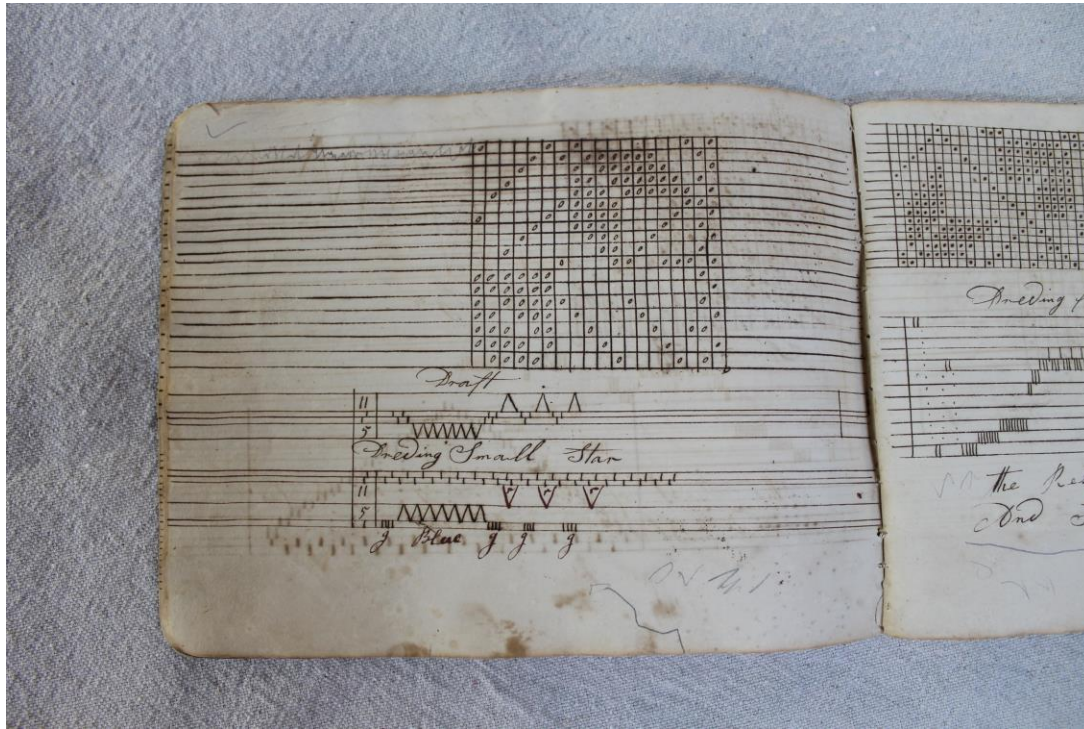 Draft
11
5
Dreding Small Star
11
5
g Blue g g g
Dreding
the
And